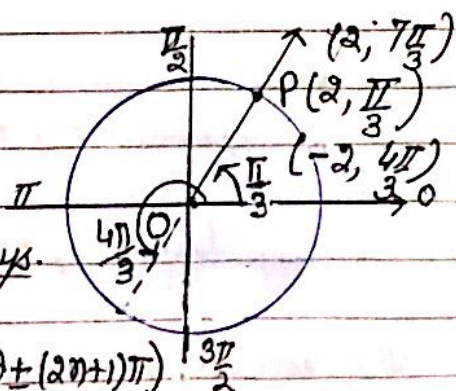 π/2
(2, 7π/3)
P(2, π/3)
(-2, 4π/3)
π/3
π
O
0
4π/3
ys.
θ±(2n+1)π)
3π/2